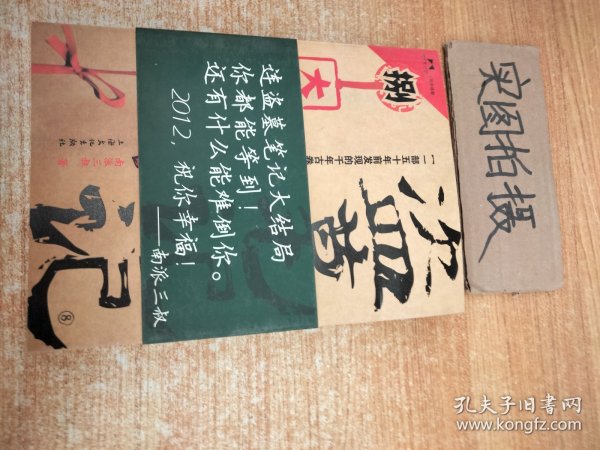 连盗墓笔记大结局
你都能等到！
还有什么能难倒你。
2012，祝你幸福！
——南派三叔
捌
大
一部五十年前发现的千年古卷
盗
墓
记
⑧
南派三叔 著
上海文化出版社
实图拍摄
孔夫子旧书网
www.kongfz.com